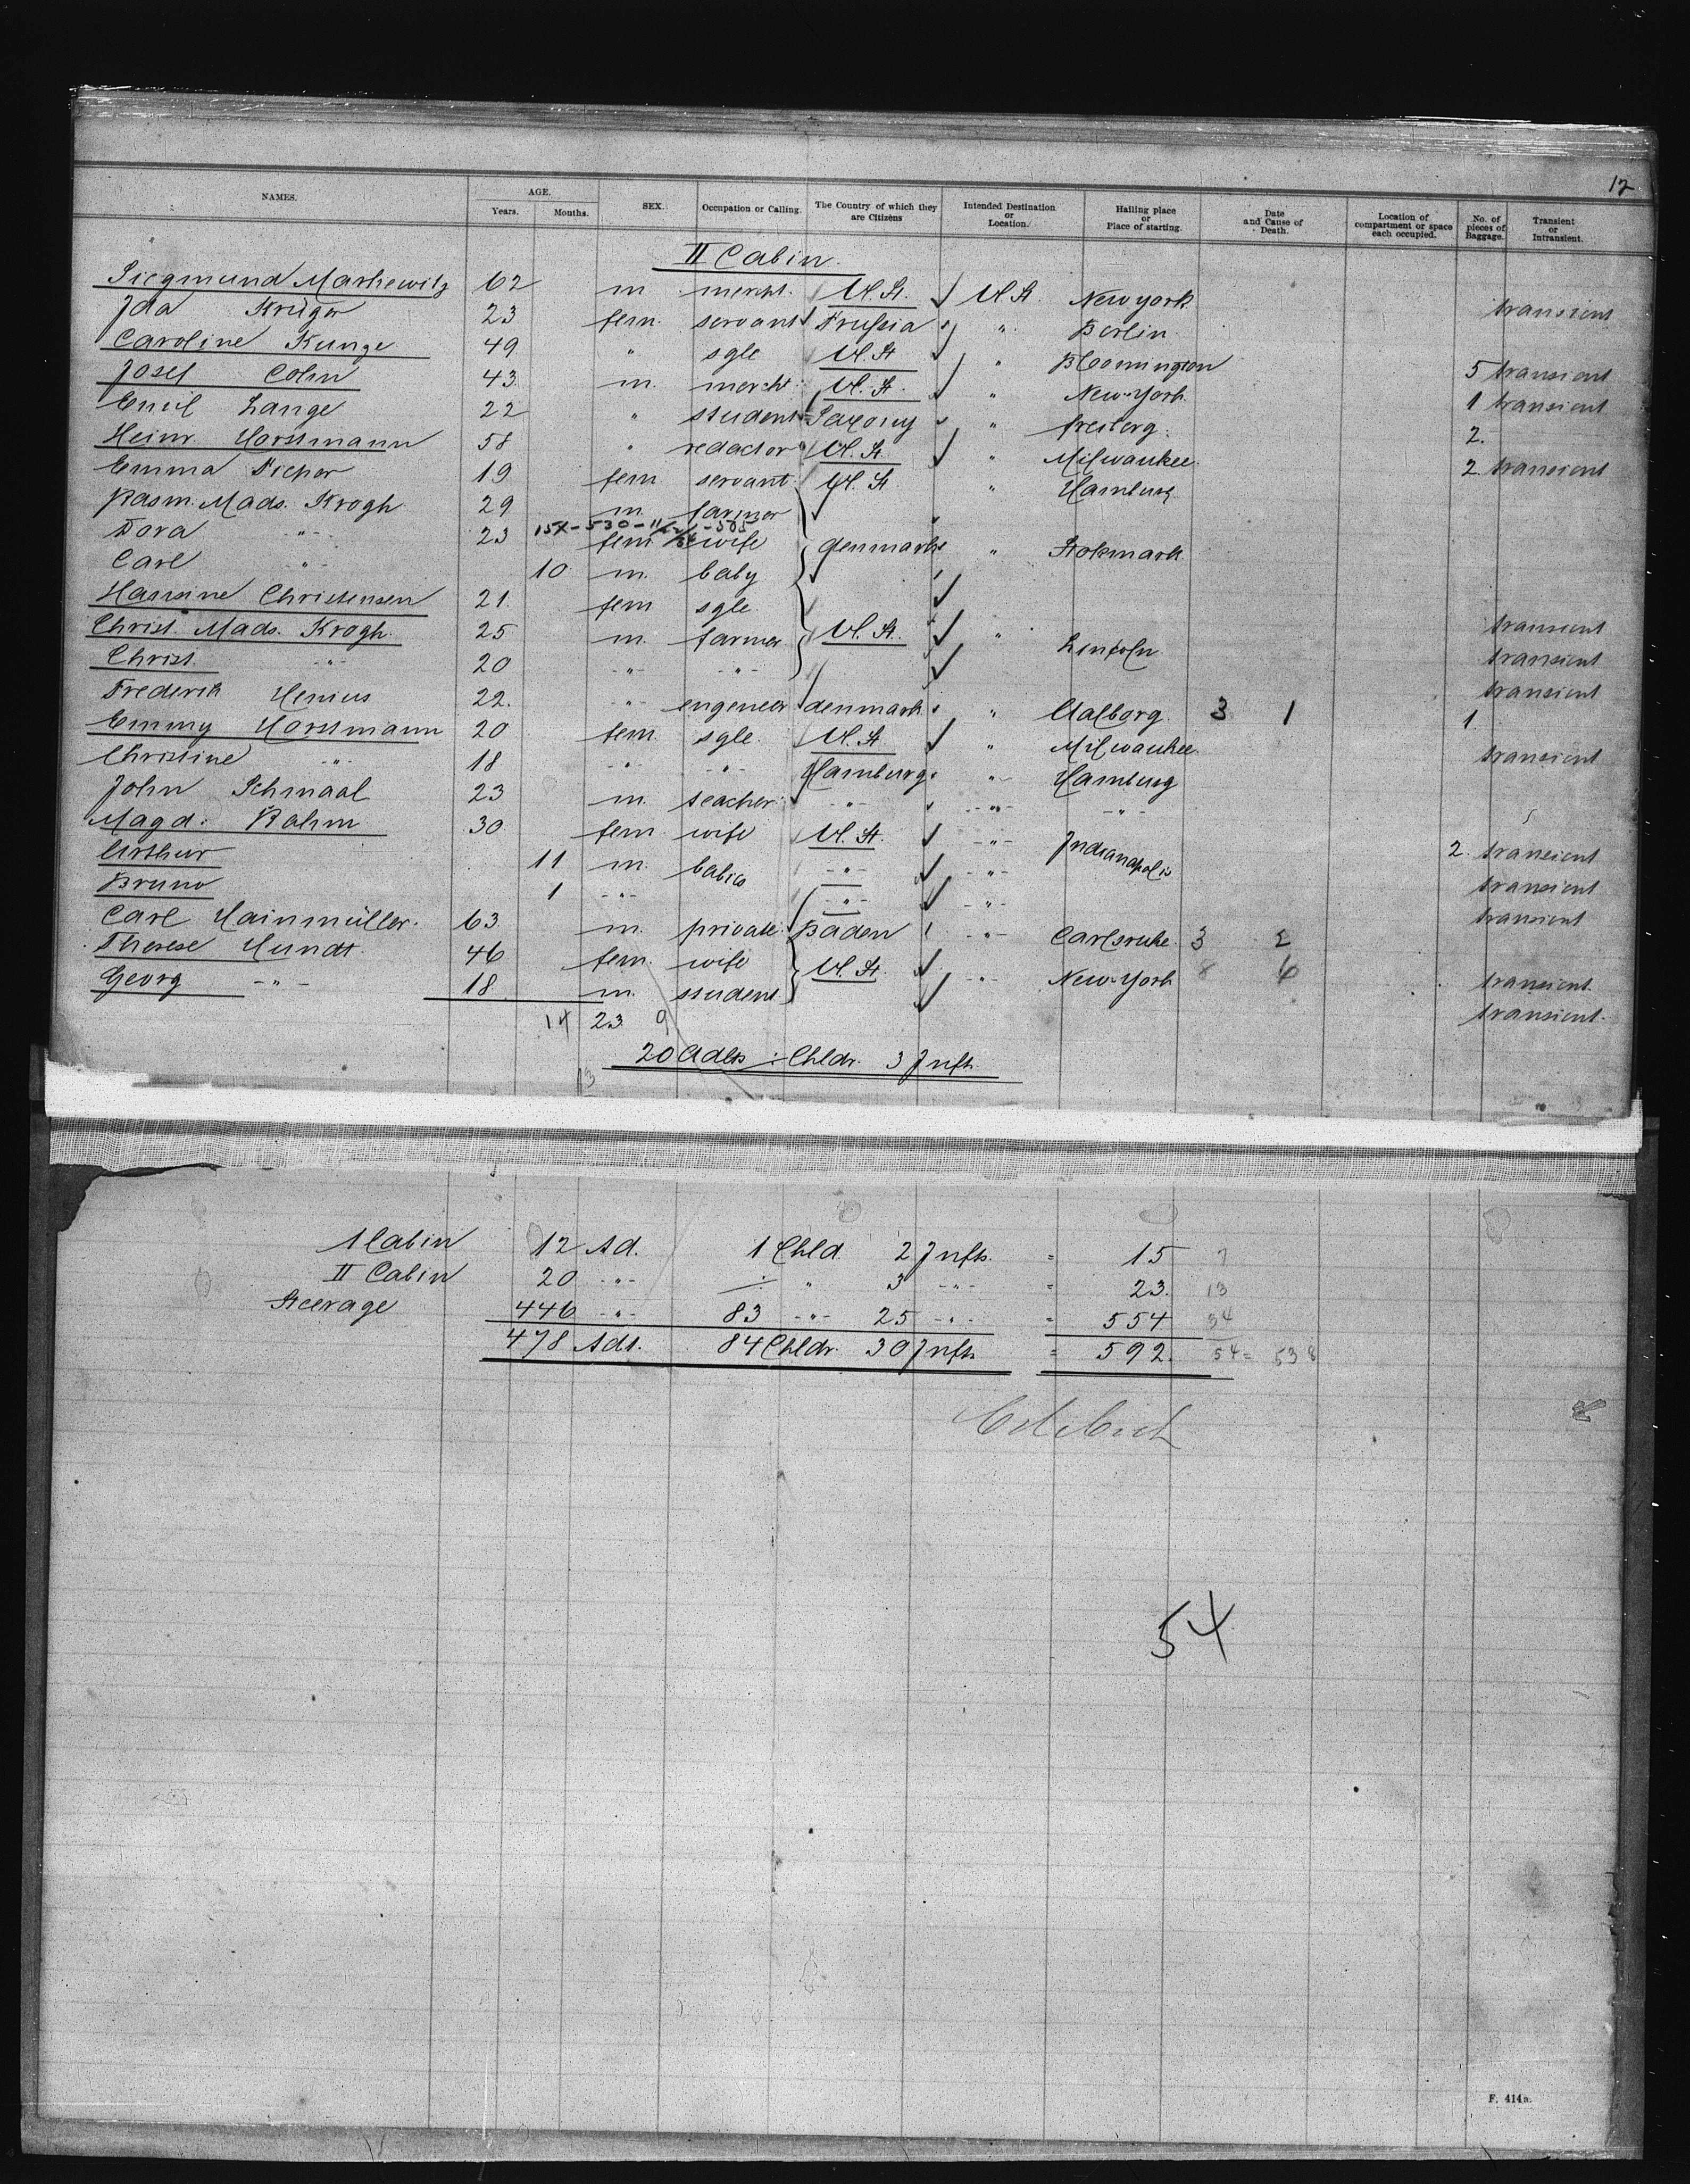 12
NAMES. AGE. Years. Months. SEX. Occupation or Calling. The Country of which they are Citizens Intended Destination or Location. Hailing place or Place of starting. Date and Cause of Death. Location of compartment or space each occupied. No. of pieces of Baggage. Transient or Intransient.
II Cabin.
Siegmund Markewitz 62 m mercht. U. St. U St. New york transient
Ida Krüger 23 fem. servant Prussia " Berlin
Caroline Kunze 49 " sgle U. St " Bloomington 5 transient
Josef Cohn 43 m. mercht. U. St. " New-York 1 transient
Emil Lange 22 " student Saxony " freiberg. 2.
Heinr. Horstmann 58 " redactor U. St. " Milwaukee. 2 transient
Emma Picher 19 fem servant U. St. " Hamburg
Rasm. Mads. Krogh 29 m. farmer "
15X-530-11
Dora -"- 23 fem wife denmark " Stokmark
Carl -"- 10 m. baby
Hansine Christensen 21. fem sgle transient
Christ. Mads. Krogh. 25 m. farmer U. St. " Lincoln transient
Christ. -"- 20 -"- -"- transient
Frederik Henius 22. -"- engeneer denmark " Aalborg. 3 1 1.
Emmy Horstmann 20 fem. sgle. U. St " Milwaukee transient
Christine -"- 18 -"- -"- Hamburg " Hamburg
John Schmaal 23 m. teacher -"- -"- -"-
Magd. Rahm 30. fem. wife U. St. -"- Indianapolis 2. transient
Arthur 11 m. babies -"- -"- transient
Bruno 1 -"- -"- -"- transient
Carl Hainmüller. 63 m. private. Baden -"- Carlsruhe. 3 2
Therese Hundt 46 fem. wife U. St. -"- New-York 8 6 transient.
Georg -"- 18 m. student transient.
14 23 9
20 Adlts ÷ Chldr. 3 Infts.
13
I Cabin 12 Ad. 1 Chld. 2 Infts. = 15 7
II Cabin 20 -"- ÷ " 3 -"- = 23. 13
Steerage 446 -"- 83 -"- 25 -"- = 554 34
478 Adt. 84 Chldr. 30 Infts = 592. 54 = 538
54
F. 414a.